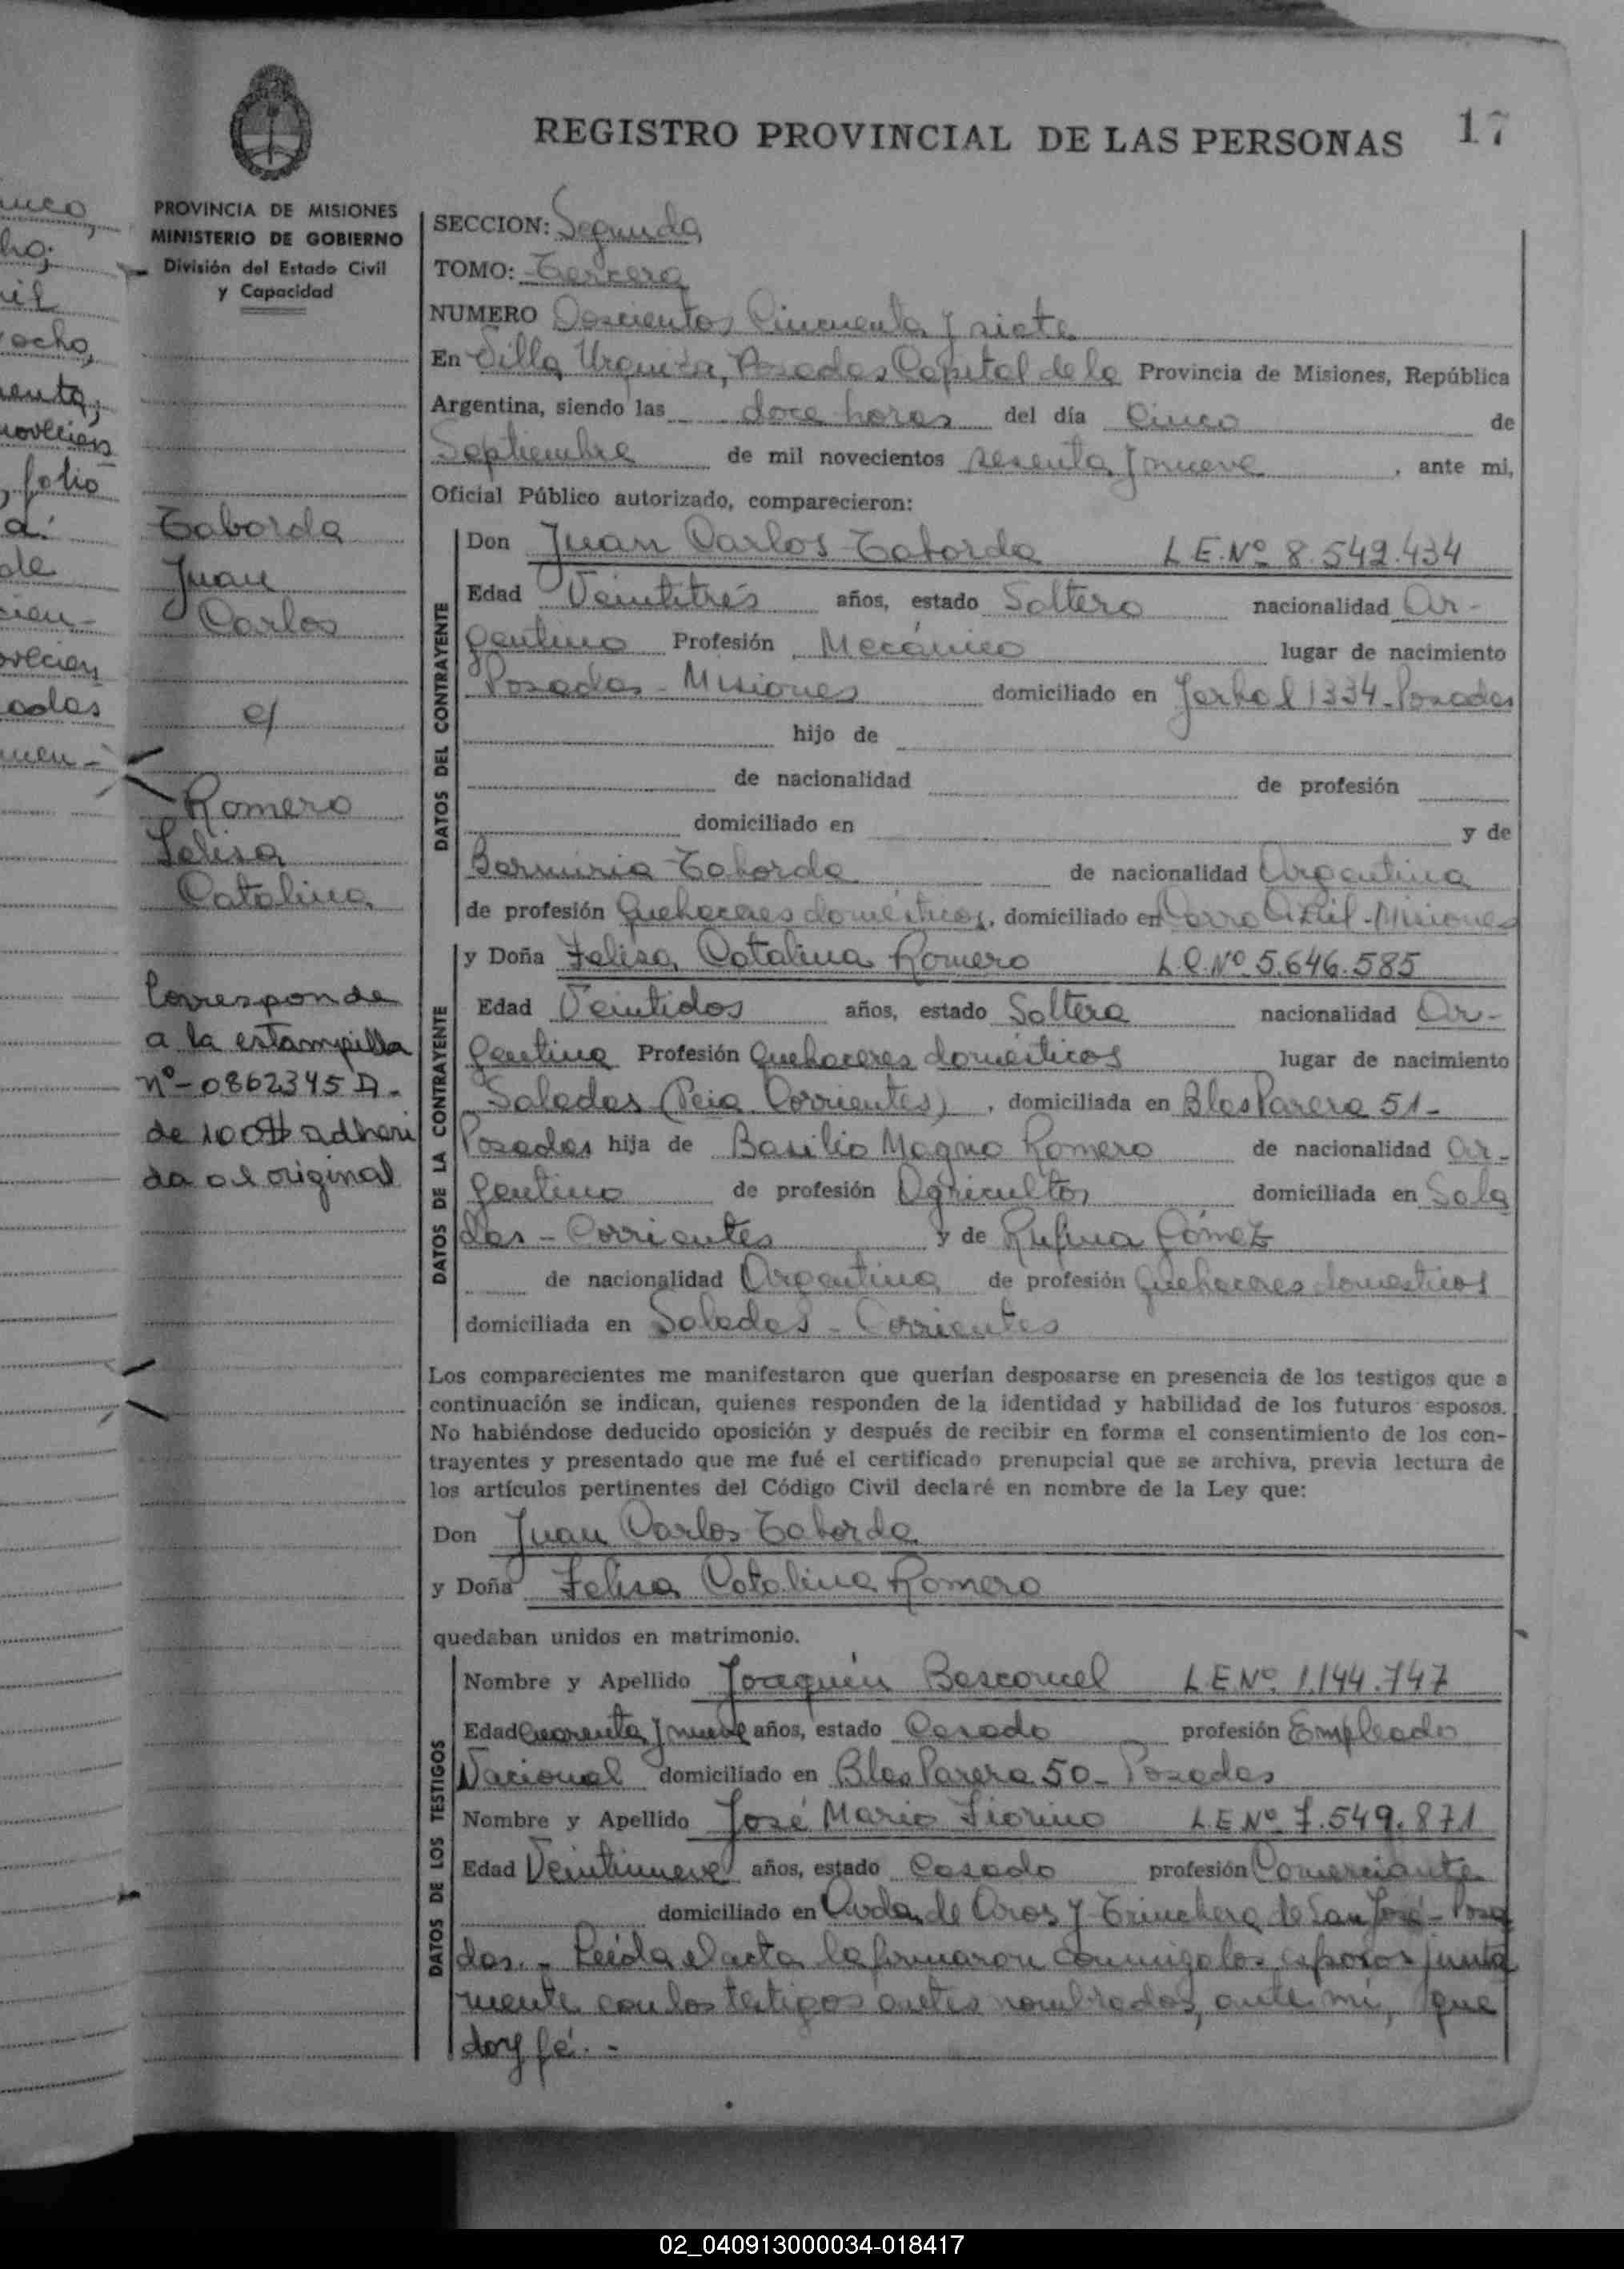 REGISTRO PROVINCIAL DE LAS PERSONAS 17
PROVINCIA DE MISIONES
MINISTERIO DE GOBIERNO
División del Estado Civil
y Capacidad
Taborda
Juan
Carlos
c/
Romero
Felisa
Catalina
Corresponde
a la estampilla
nº-0862345 A-
de 100$ adheri
da al original
SECCION: Segunda
TOMO: Tercero
NUMERO Doscientos Cincuenta y siete
En Villa Urquiza, Posadas Capital de la Provincia de Misiones, República
Argentina, siendo las doce horas del día Cinco de
Septiembre de mil novecientos sesenta y nueve, ante mi,
Oficial Público autorizado, comparecieron:
DATOS DEL CONTRAYENTE
Don Juan Carlos Taborda L E.Nº 8.542.434
Edad Veintitrés años, estado Soltero nacionalidad Ar-
gentino Profesión Mecánico lugar de nacimiento
Posadas - Misiones domiciliado en Yerbal 1334-Posadas
hijo de
de nacionalidad de profesión
domiciliado en y de
Taborda de nacionalidad Argentina
de profesión Quehaceres domésticos, domiciliado en Cerro Azul-Misiones
DATOS DE LA CONTRAYENTE
y Doña Felisa Catalina Romero L.C.Nº 5.646.585
Edad Veintidos años, estado Soltera nacionalidad Ar-
gentina Profesión Quehaceres domésticos lugar de nacimiento
Saladas (Pcia. Corrientes), domiciliada en Blas Parera 51-
Posadas hija de Basilio Magno Romero de nacionalidad Ar-
gentino de profesión Agricultor domiciliada en Sala
das - Corrientes y de Rufina Gómez
de nacionalidad Argentina de profesión Quehaceres domesticos
domiciliada en Saladas - Corrientes
Los comparecientes me manifestaron que querían desposarse en presencia de los testigos que a
continuación se indican, quienes responden de la identidad y habilidad de los futuros esposos.
No habiéndose deducido oposición y después de recibir en forma el consentimiento de los con-
trayentes y presentado que me fué el certificado prenupcial que se archiva, previa lectura de
los artículos pertinentes del Código Civil declaré en nombre de la Ley que:
Don Juan Carlos Taborda
y Doña Felisa Catalina Romero
quedaban unidos en matrimonio.
DATOS DE LOS TESTIGOS
Nombre y Apellido Joaquín Bascouel L.E.Nº 1.144.747
Edad Cuarenta y nueve años, estado Casado profesión Empleado
Nacional domiciliado en Blas Parera 50- Posadas
Nombre y Apellido José Mario Fiorino L.E.Nº 7.549.871
Edad Veintinueve años, estado Casado profesión Comerciante
domiciliado en Avda. de Aros y Trinchera de San José - Posa
das. - Leída el acta la firmaron conmigo los esposos junta
mente con los testigos antes nombrados, ante mi, que
doy fé. -
02_040913000034-018417